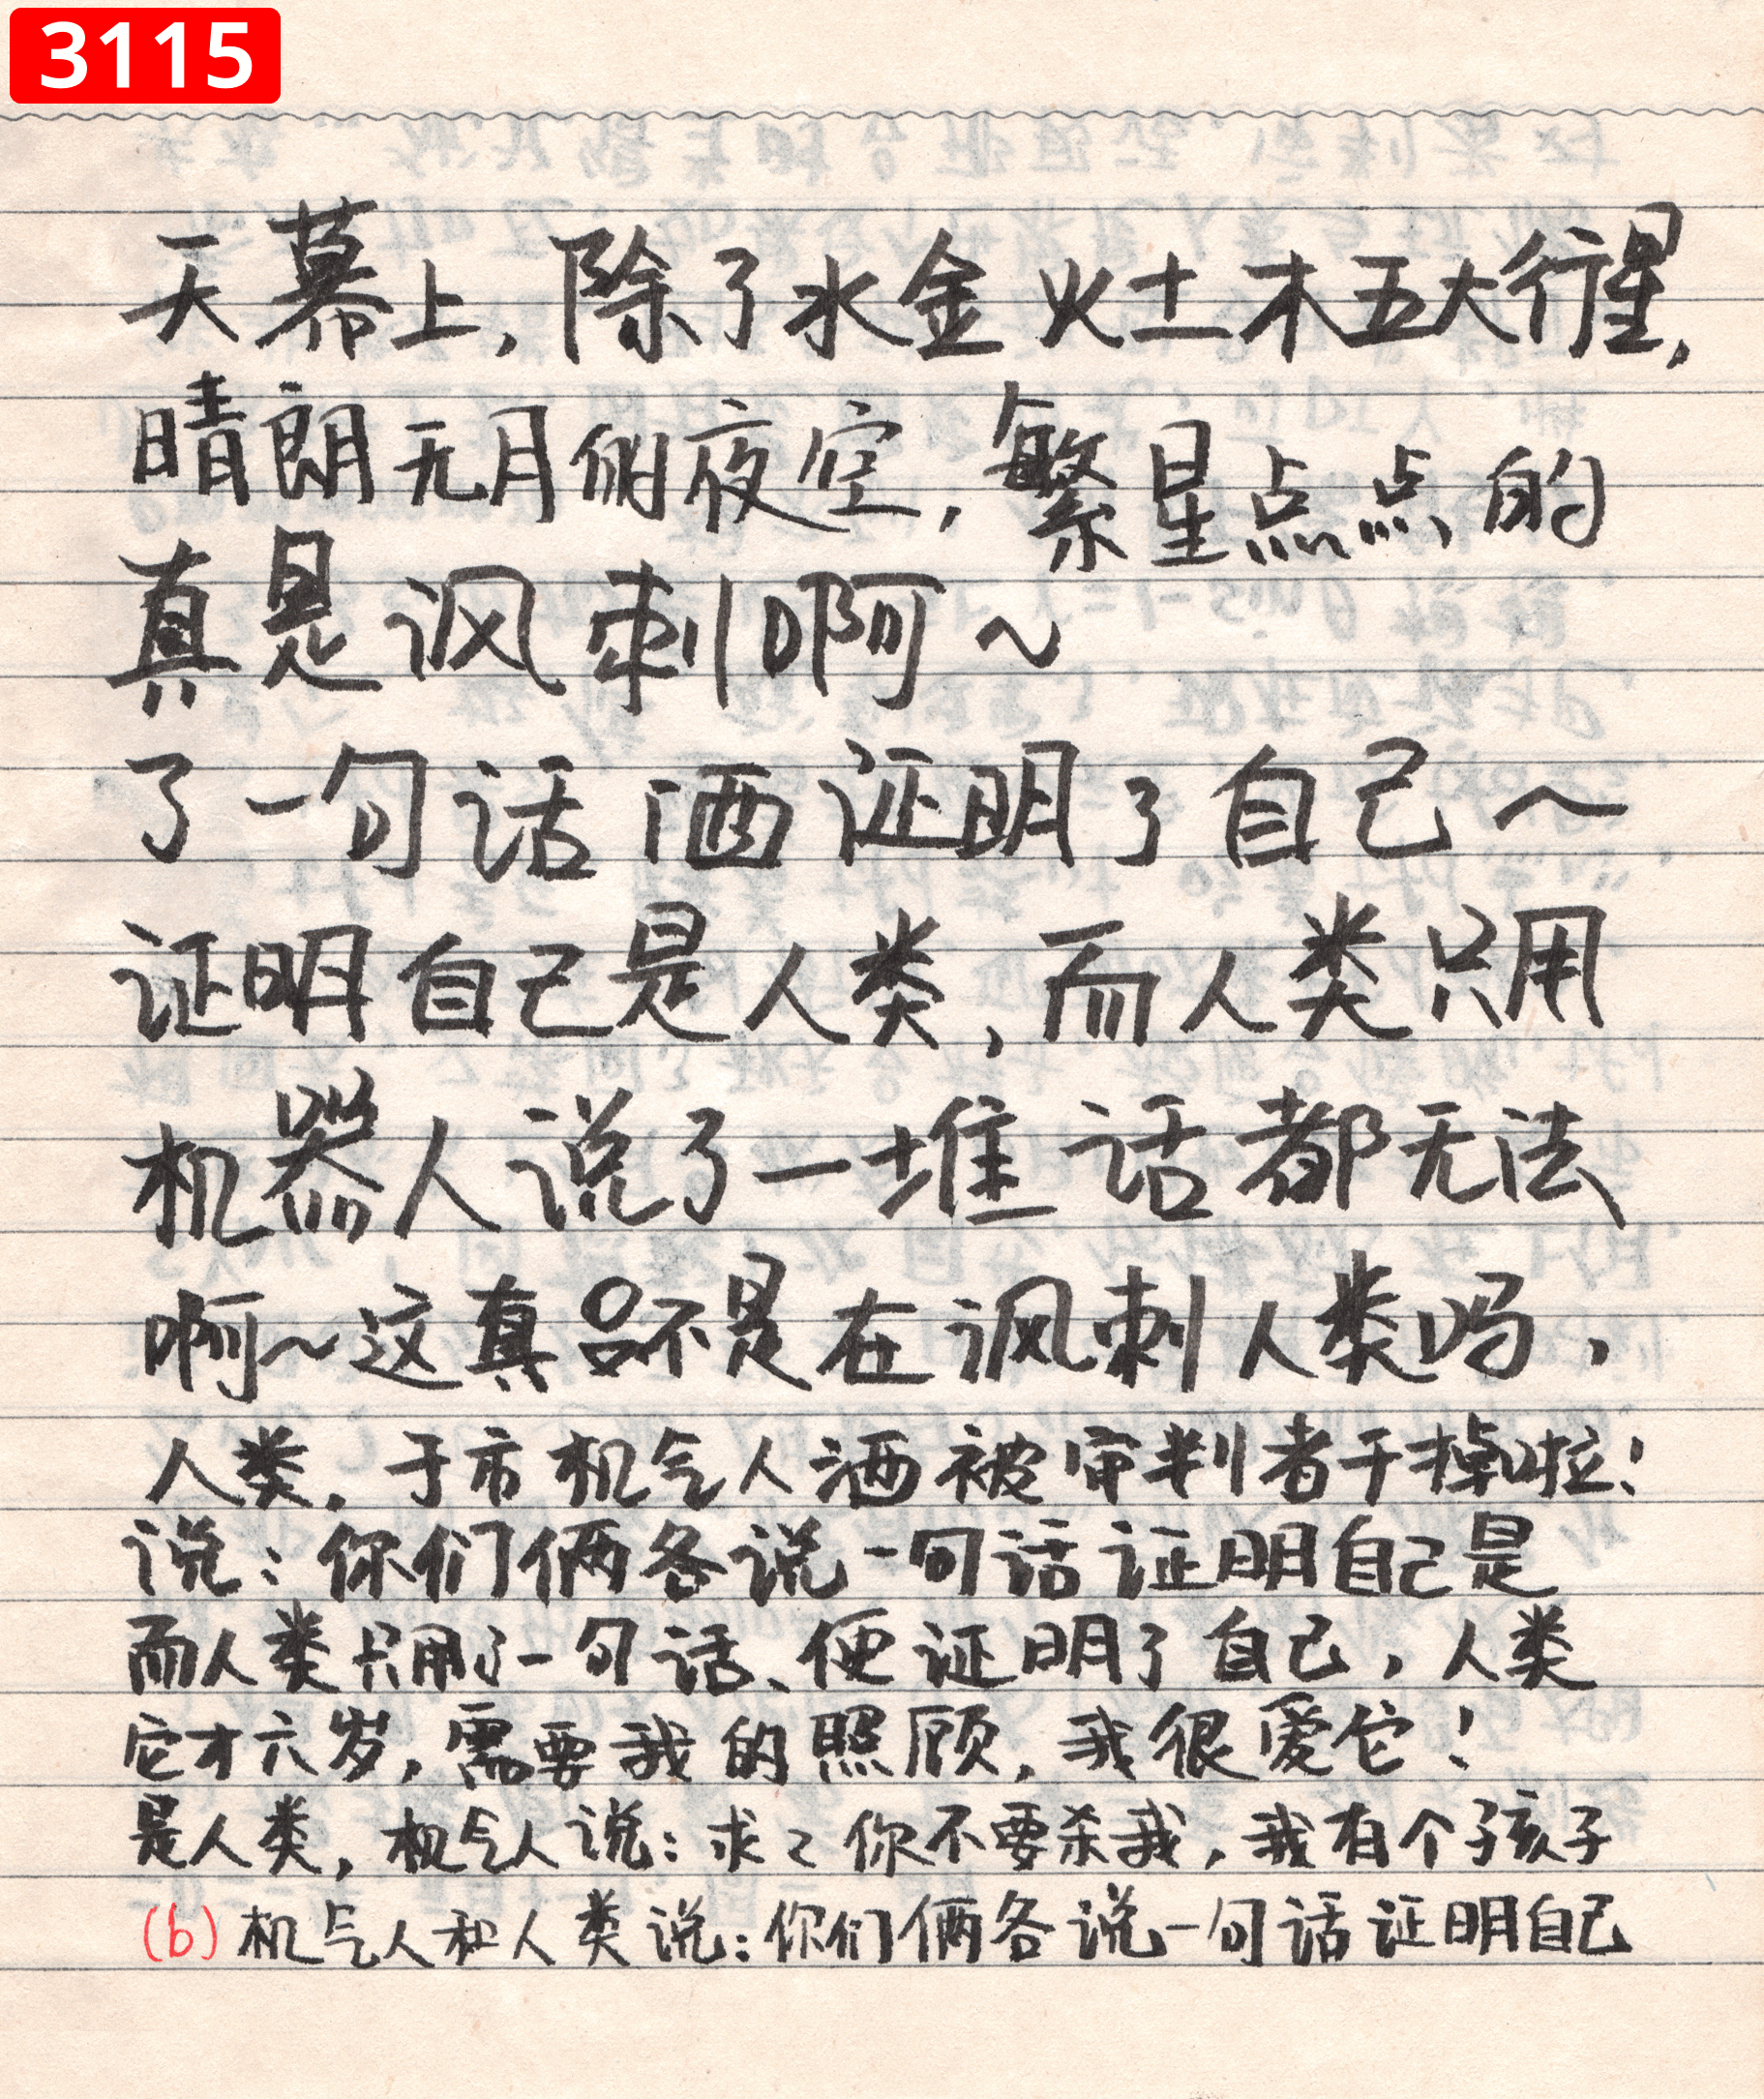 3115
天幕上,除了水金火土木五大行星,
晴朗无月的夜空,繁星点点的
真是讽刺啊~
了一句话洒证明了自己~
证明自己是人类,而人类只用
机器人说了一堆话都无法
啊~这真是不是在讽刺人类吗,
人类。于市机气人洒被审判者干掉啦!
说:你们俩各说一句话证明自己是
而人类只用了一句话、便证明了自己,人类
它才六岁,需要我的照顾,我很爱它!
是人类,机气人说:求々你不要杀我,我有个子孩子
(b)机气人和人类说:你们俩各说一句话证明自己